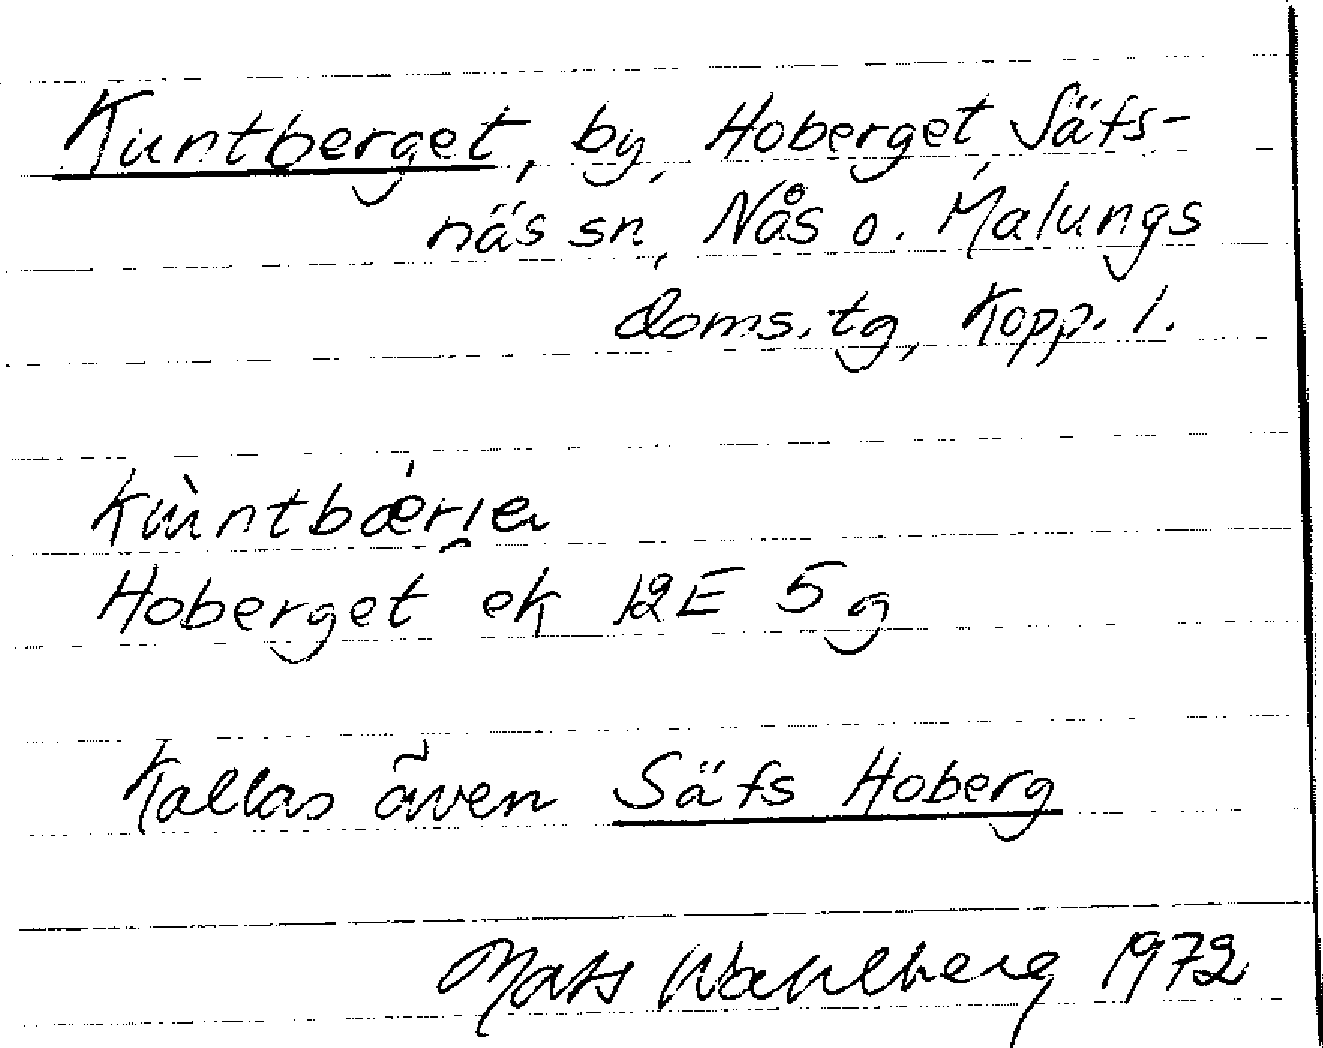 Kuntberget, by, Hoberget, Säfs-
näs sn, Nås o. Malungs
doms. tg, Kopp. l.
Hoberget ek 12E 5g
Kallas även Säfs Hoberg
Mats Wahlberg 1972